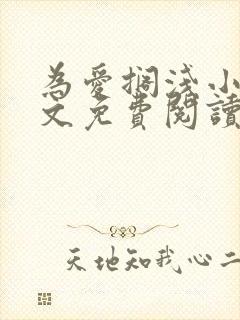 為愛擱淺小
文免費閱讀
天地知我心二